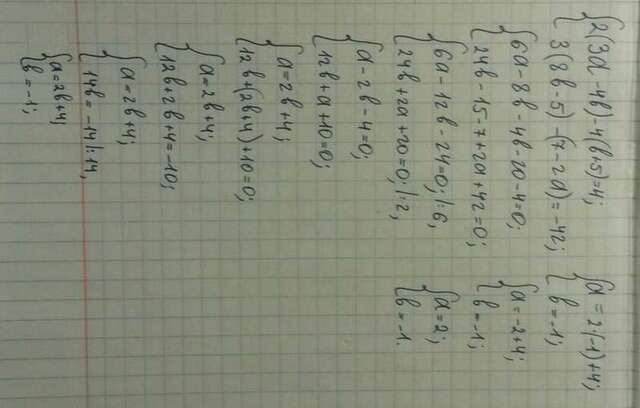 2(3a - 4b) - 4(b+5) = 4;
3(8b - 5) - (7 - 2a) = -42;
6a - 8b - 4b - 20 - 4 = 0;
24b - 15 - 7 + 2a + 42 = 0;
6a - 12b - 24 = 0; |:6,
24b + 2a + 20 = 0; |:2,
a - 2b - 4 = 0;
12b + a + 10 = 0;
a = 2b + 4;
12b + (2b + 4) + 10 = 0;
a = 2b + 4;
12b + 2b + 4 = -10;
a = 2b + 4;
14b = -14 |:14,
a = 2b + 4;
b = -1;
a = 2·(-1) + 4;
b = -1;
a = -2 + 4;
b = -1;
a = 2;
b = -1.